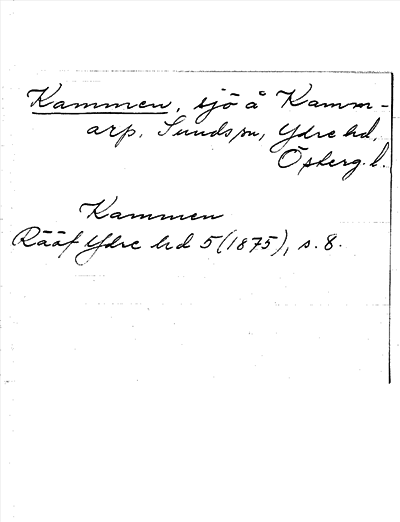 Kammen, sjö å Kamm-
arp, Sunds sn, Ydre hd,
Österg. l.
Kammen
Rääf Ydre hd 5(1875), s. 8.